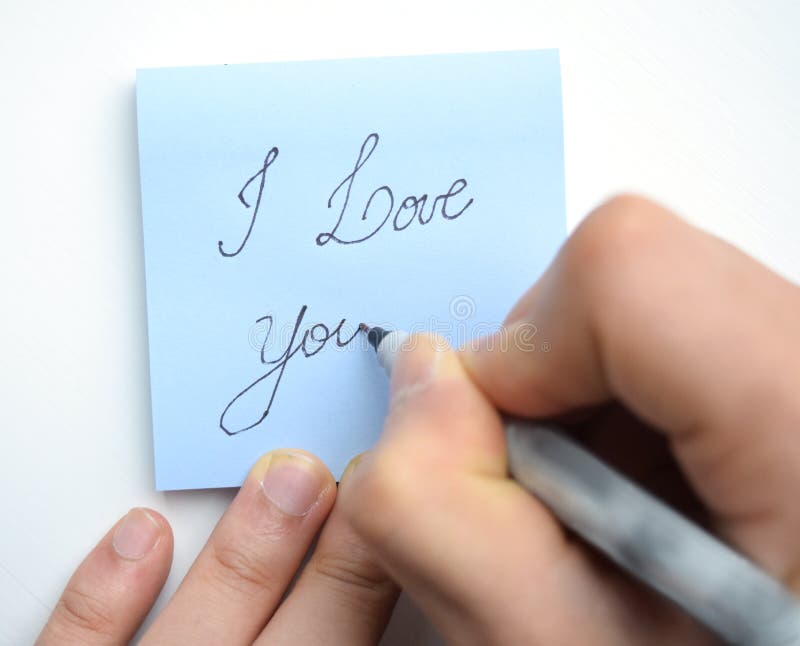 I Love
You